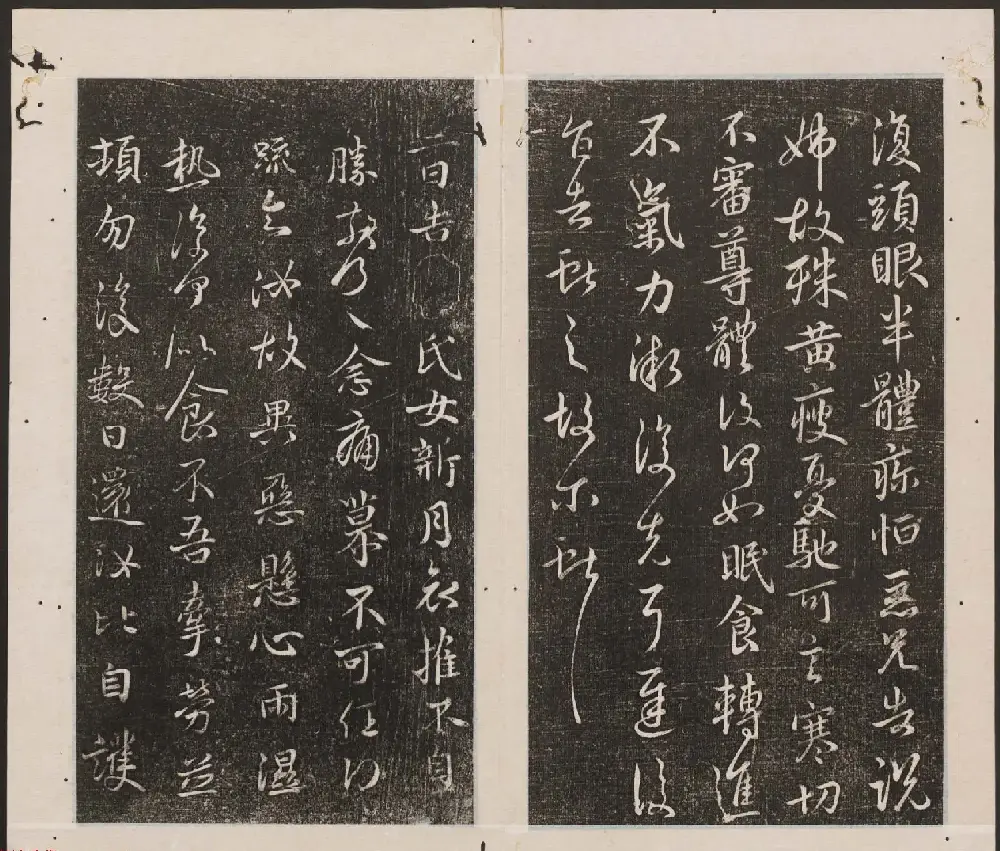 復頭眼半體疼恒惡兄告說
姊故殊黃瘦憂馳可言寒切
不審尊體復何如眠食轉進
不氣力漸復先弓遲復
告獻之故尓獻
一日告氏女新月哀摧不自
勝奈何奈何念痛慕不可任得
疏知汝故異惡懸心雨濕
熱復何似食不吾牽勞並
頓勿復數日還汝比自護